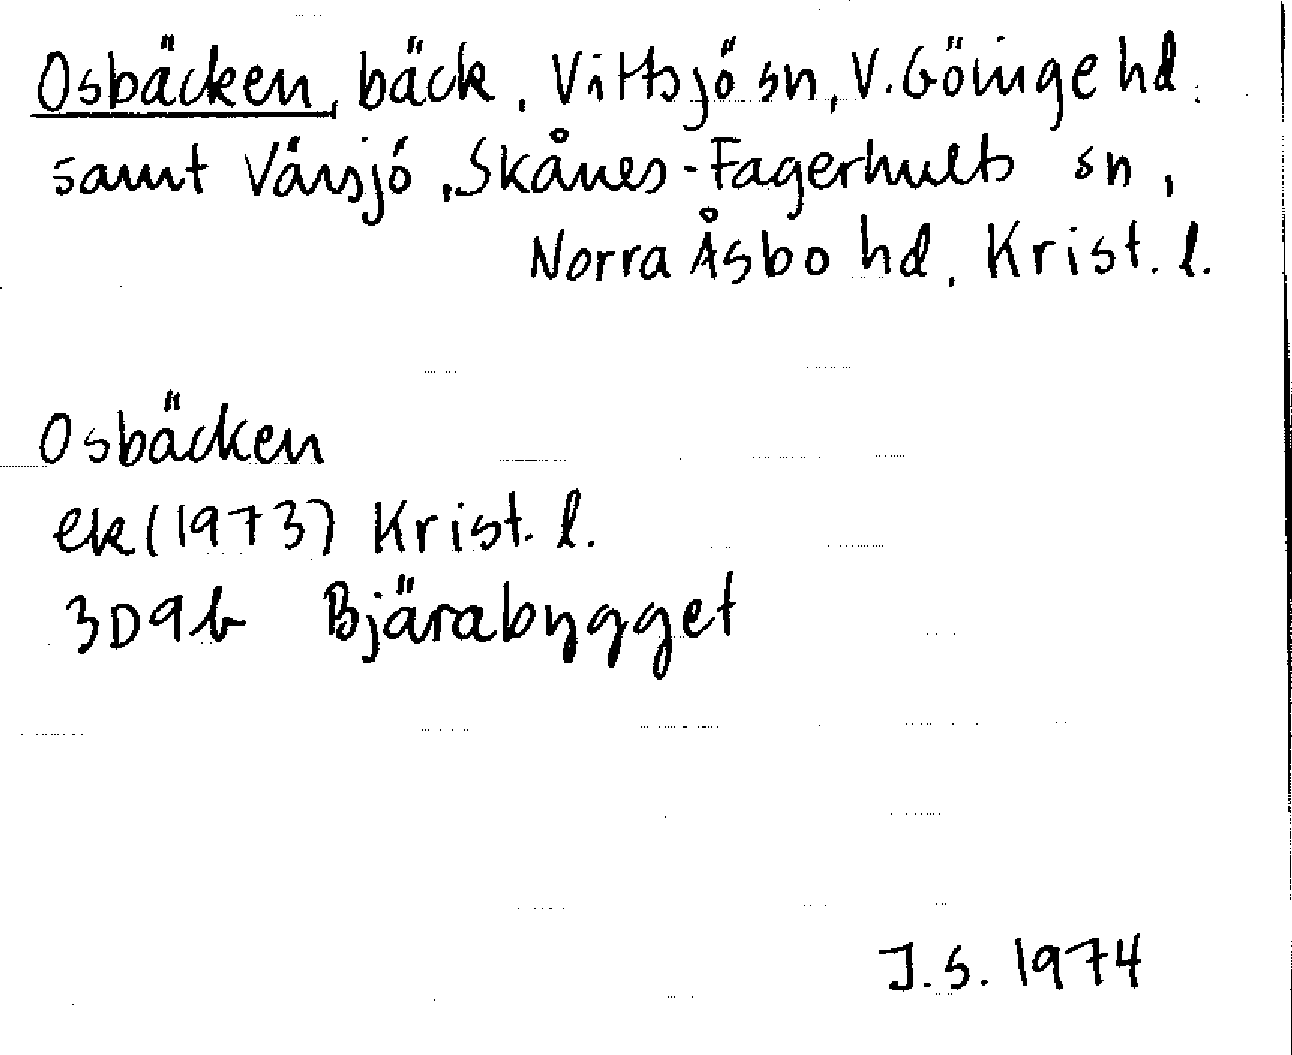 Osbäcken, bäck, Vittsjö sn, V. Göinge hd.
samt Vårsjö, Skånes-Fagerhults sn,
Norra Åsbo hd, Krist. l.
Osbäcken
ek (1973) Krist. l.
3D9b Bjärabygget
J.S. 1974